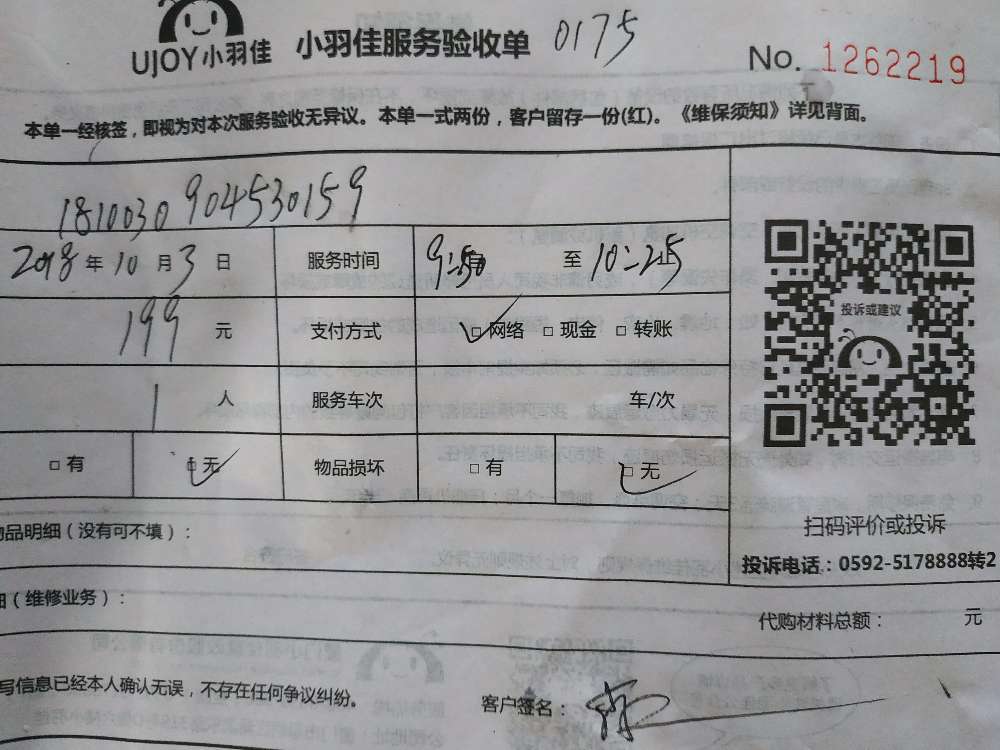 UJOY小羽佳 小羽佳服务验收单 0175
No. 1262219
本单一经核签，即视为对本次服务验收无异议。本单一式两份，客户留存一份(红)。《维保须知》详见背面。
1810030904530159
2018年10月3日 服务时间 9:50 至 10:25
199 元 支付方式 □网络 □现金 □转账
投诉或建议
1 人 服务车次 车/次
□有 □无 物品损坏 □有 □无
扫码评价或投诉
品明细（没有可不填）：
投诉电话：0592-5178888转2
（维修业务）：
代购材料总额： 元
写信息已经本人确认无误，不存在任何争议纠纷。
客户签名：